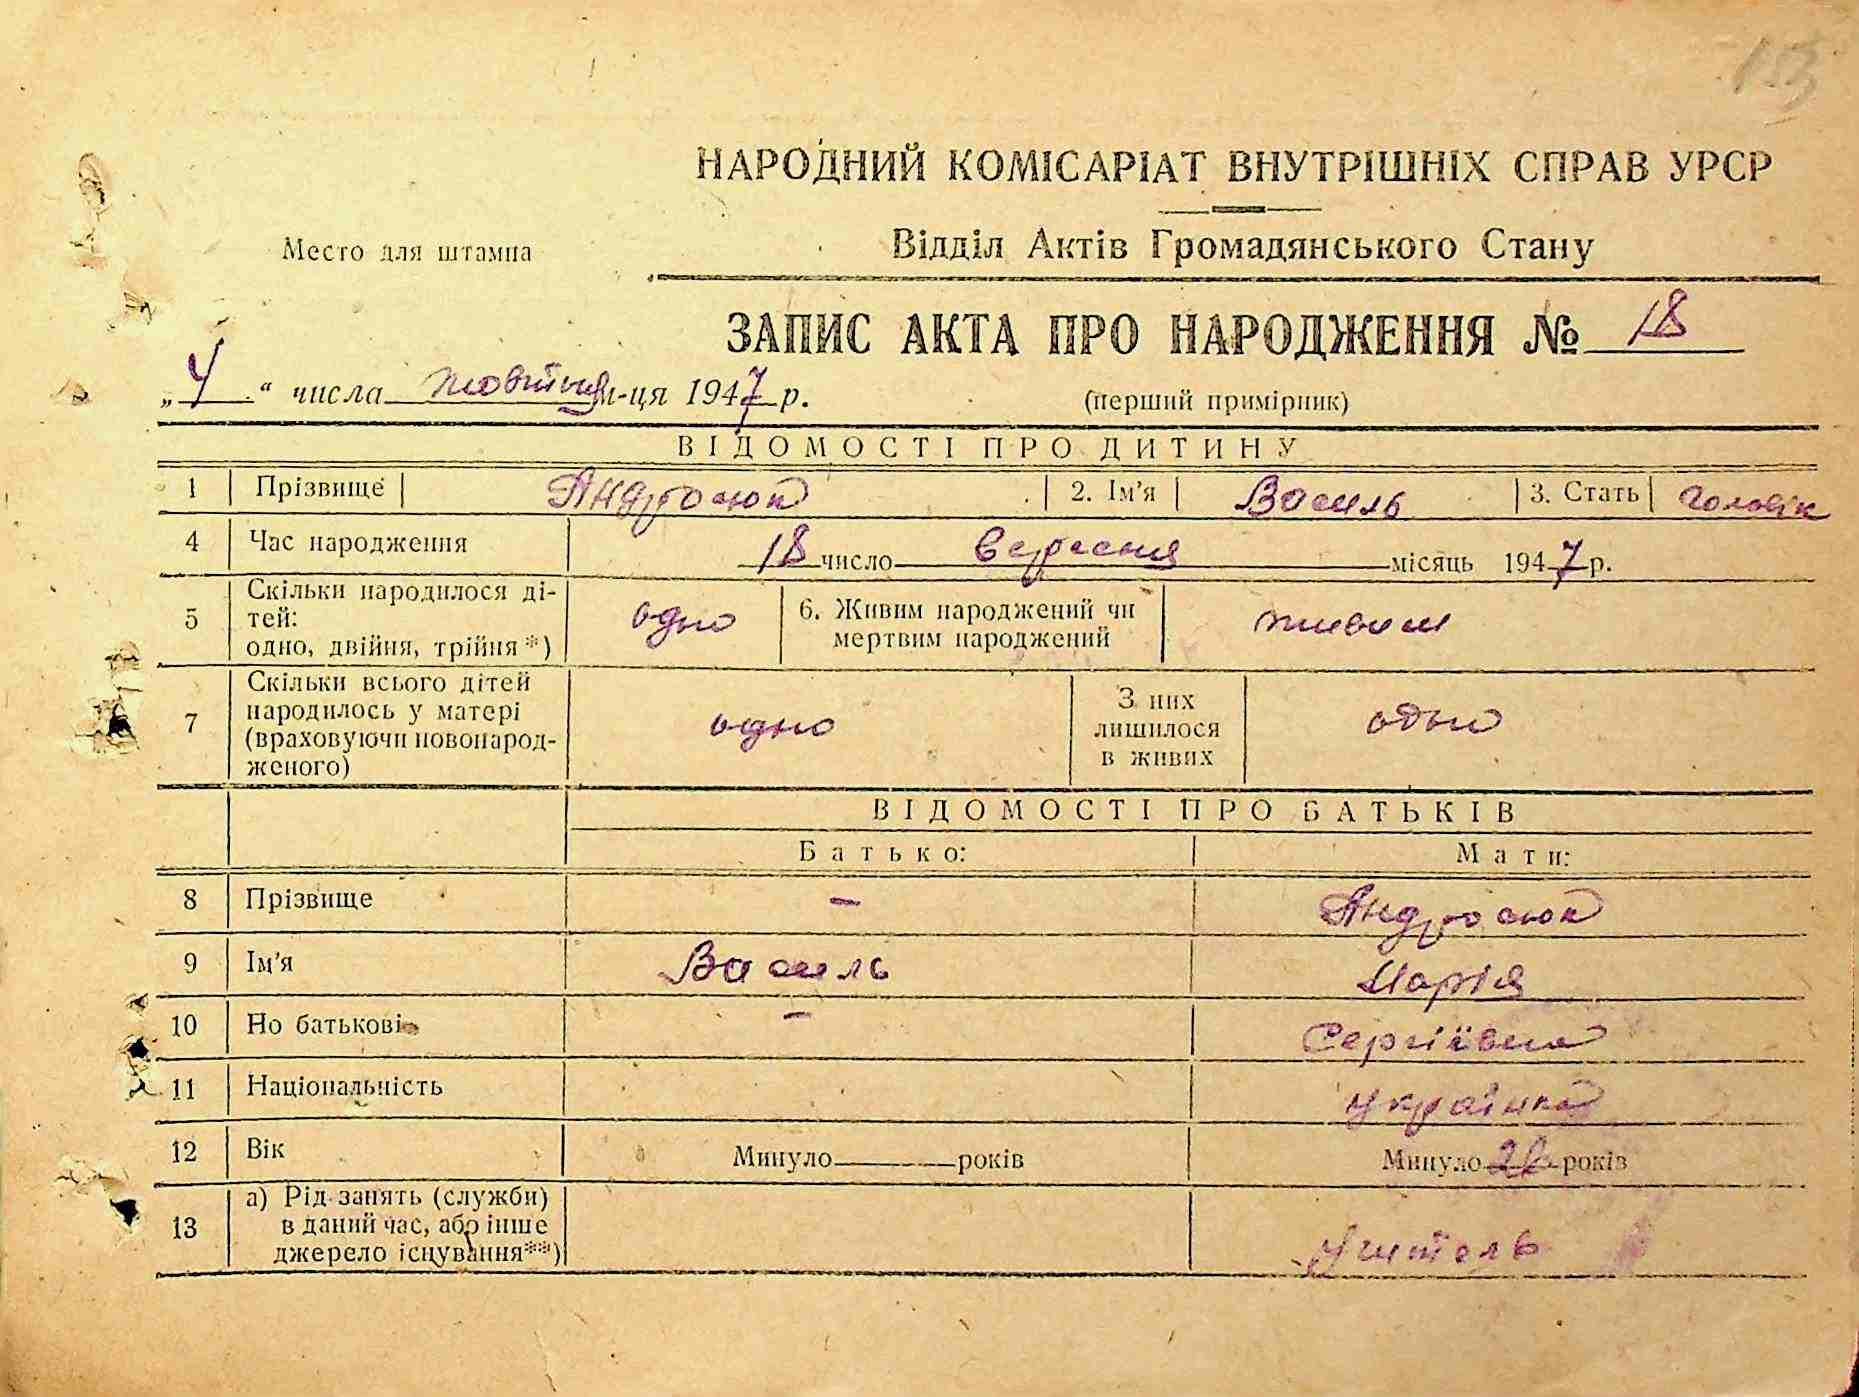 153
НАРОДНИЙ КОМІСАРІАТ ВНУТРІШНІХ СПРАВ УРСР
Место для штампа
Відділ Актів Громадянського Стану
ЗАПИС АКТА ПРО НАРОДЖЕННЯ № 18
„4“ числа жовтня м-ця 1947 р.
(перший примірник)
ВІДОМОСТІ ПРО ДИТИНУ
1 Прізвище Андросюк 2. Ім'я Василь 3. Стать Чоловік
4 Час народження 18 число вересня місяць 1947 р.
5 Скільки народилося ді-
тей:
одно, двійня, трійня *) одно 6. Живим народжений чи
мертвим народжений живим
7 Скільки всього дітей
народилось у матері
(враховуючи новонарод-
женого) одно З них
лишилося
в живих одно
ВІДОМОСТІ ПРО БАТЬКІВ
Батько: Мати:
8 Прізвище - Андросюк
9 Ім'я Василь Марія
10 Но батькові - Сергіївна
11 Національність українка
12 Вік Минуло року років Минуло років
13 а) Рід занять (служби)
в даний час, або інше
джерело існування**) Учитель